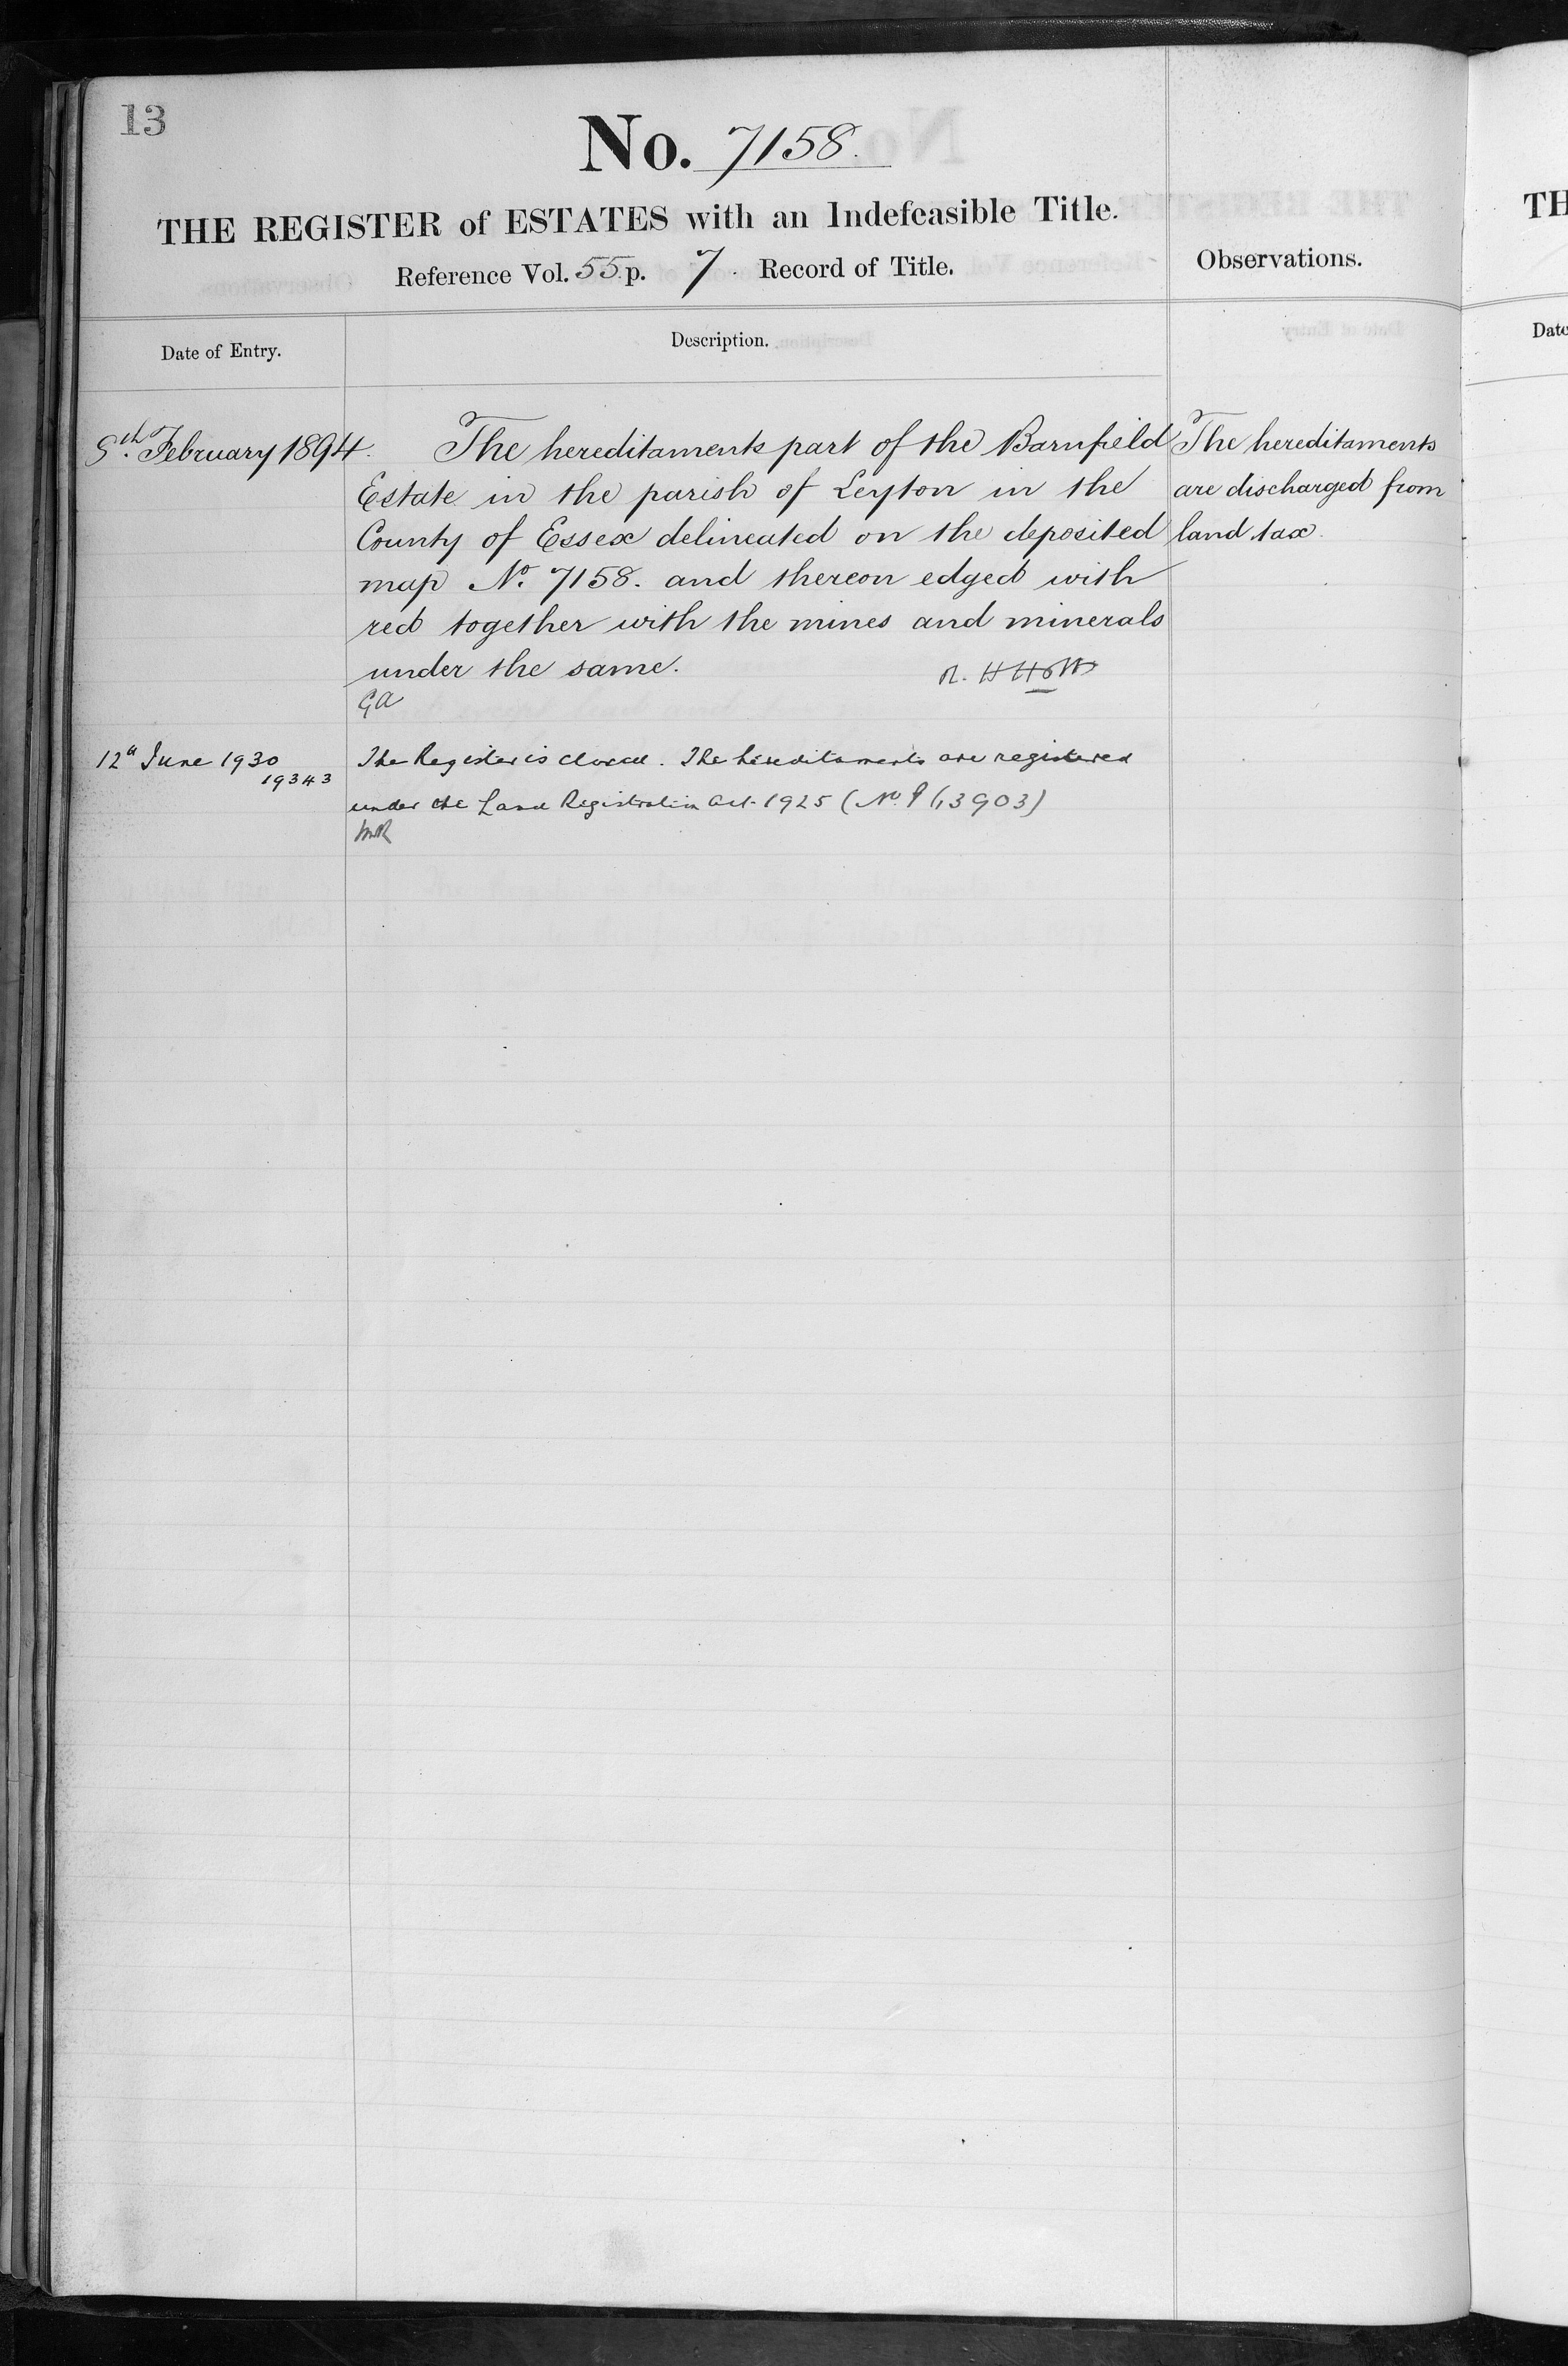 13
No. 7158.
THE REGISTER of ESTATES with an Indefeasible Title.
Reference Vol. 55 p. 7. Record of Title.
Observations.
Date of Entry.
Description.
February 1894.
The hereditaments part of the Barnfield
Estate in the parish of Leyton in the
County of Essex delineated on the deposited
map No. 7158. and thereon edged with
red together with the mines and minerals
under the same.
GA
The hereditaments
are discharged from
land tax.
12th June 1930
19343
The Register is closed. The hereditaments are registered
under the Land Registration Act 1925 (No. P 13903)
MR
TH
Date